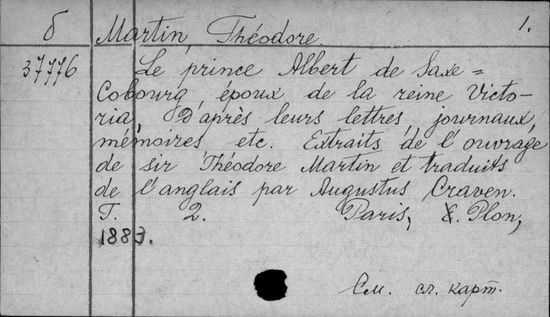 б Martin, Théodore. 1.
37776 Le prince Albert de Saxe=
Cobourg, époux de la reine Victo-
ria, D'après leurs lettres, journaux,
mémoires, etc. Extraits de l'ouvrage
de sir Théodore Martin et traduits
de l'anglais par Augustus Craven.
T. 2. Paris, E. Plon,
1883.
См. сл. карт.